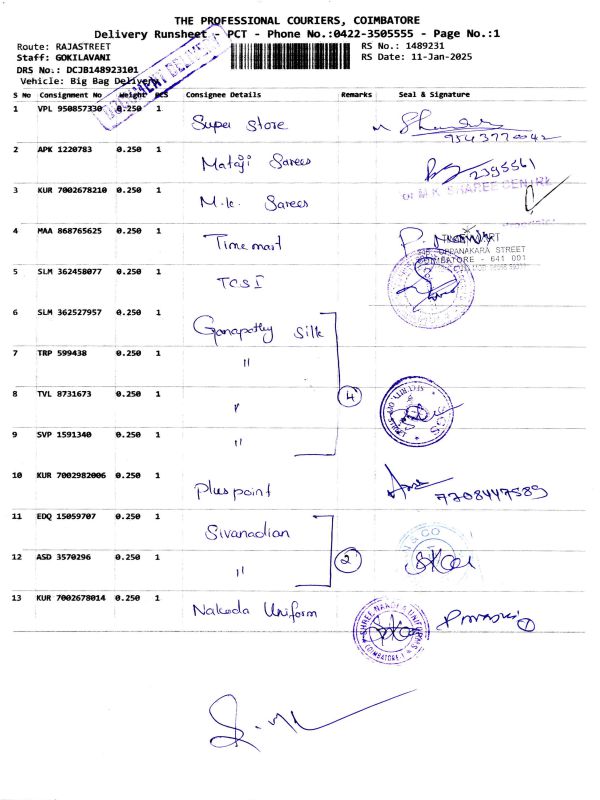 THE PROFESSIONAL COURIERS, COIMBATORE
Delivery Runsheet - PCT - Phone No.:0422-3505555 - Page No.:1
Route: RAJASTREET RS No.: 1489231
Staff: GOKILAVANI RS Date: 11-Jan-2025
DRS No.: DCJB148923101
Vehicle: Big Bag Delivery
DOCUMENT DELIVERY
S No Consignment No Weight PCS Consignee Details Remarks Seal & Signature
1 VPL 950857330 0.250 1 Super Store
2 APK 1220783 0.250 1 Mataji Sarees 2395561
3 KUR 7002678210 0.250 1 M.k. Sarees M.K. SHAREE CENTRE
4 MAA 868765625 0.250 1 Time mart
OPPANAKARA STREET
COIMBATORE - 641 001
5 SLM 362458077 0.250 1 TCS I
6 SLM 362527957 0.250 1 Ganapathy Silk
7 TRP 599438 0.250 1 "
8 TVL 8731673 0.250 1 " 4
9 SVP 1591340 0.250 1 "
10 KUR 7002982006 0.250 1 Pluspoint 7708447589
11 EDQ 15059707 0.250 1 Sivanadian
12 ASD 3570296 0.250 1 " 2
13 KUR 7002678014 0.250 1 Nakoda Uniform
SHREE NAKODA UNIFORMS
COIMBATORE-1